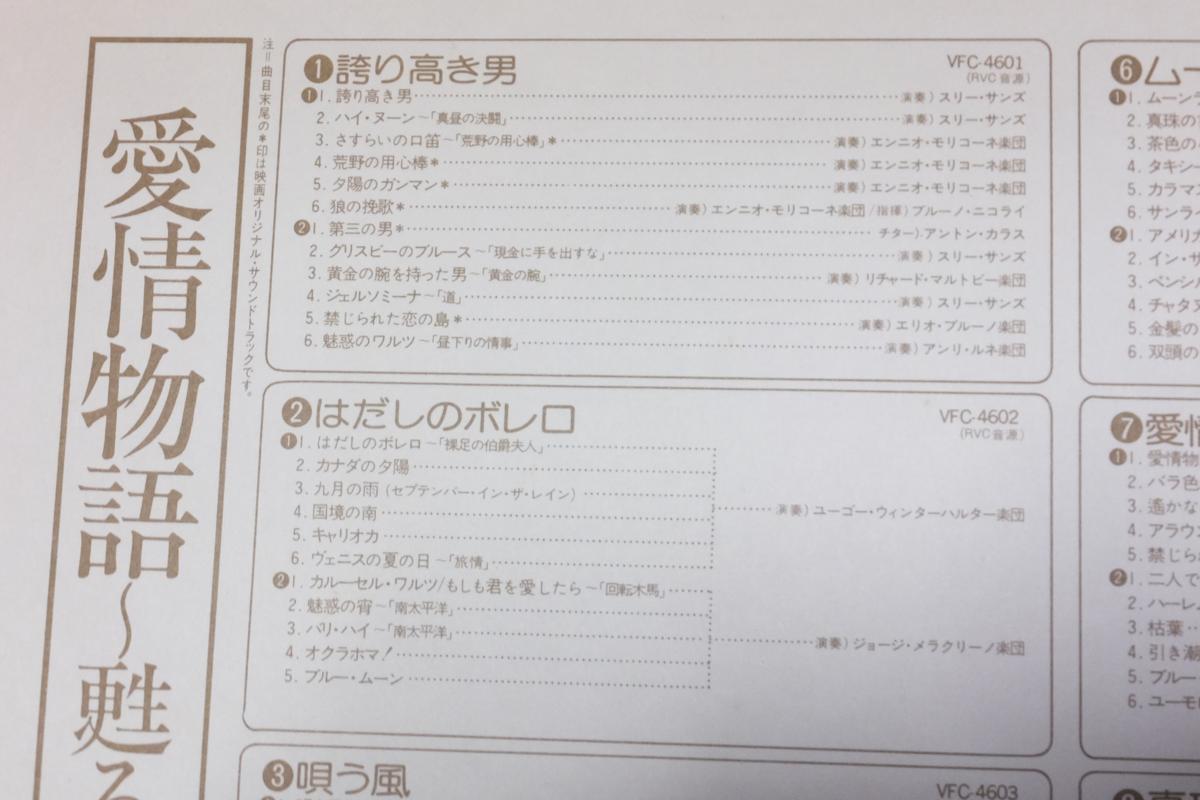 愛情物語〜甦る
注＝曲目末尾の＊印は映画オリジナル・サウンドトラックです。
❶誇り高き男 VFC-4601
(RVC音源)
❶1. 誇り高き男 演奏）スリー・サンズ
2. ハイ・ヌーン〜「真昼の決闘」 演奏）スリー・サンズ
3. さすらいの口笛〜「荒野の用心棒」＊ 演奏）エンニオ・モリコーネ楽団
4. 荒野の用心棒＊ 演奏）エンニオ・モリコーネ楽団
5. 夕陽のガンマン＊ 演奏）エンニオ・モリコーネ楽団
6. 狼の挽歌＊ 演奏）エンニオ・モリコーネ楽団/指揮）ブルーノ・ニコライ
❷1. 第三の男＊ チター）アントン・カラス
2. グリスビーのブルース〜「現金に手を出すな」 演奏）スリー・サンズ
3. 黄金の腕を持った男〜「黄金の腕」 演奏）リチャード・マルトビー楽団
4. ジェルソミーナ〜「道」 演奏）スリー・サンズ
5. 禁じられた恋の島＊ 演奏）エリオ・ブルーノ楽団
6. 魅惑のワルツ〜「昼下りの情事」 演奏）アンリ・ルネ楽団
❷はだしのボレロ VFC-4602
(RVC音源)
❶1. はだしのボレロ〜「裸足の伯爵夫人」
2. カナダの夕陽
3. 九月の雨（セプテンバー・イン・ザ・レイン）
4. 国境の南 演奏）ユーゴー・ウィンターハルター楽団
5. キャリオカ
6. ヴェニスの夏の日〜「旅情」
❷1. カルーセル・ワルツ/もしも君を愛したら〜「回転木馬」
2. 魅惑の宵〜「南太平洋」
3. バリ・ハイ〜「南太平洋」 演奏）ジョージ・メラクリーノ楽団
4. オクラホマ！
5. ブルー・ムーン
❸唄う風 VFC-4603
❻ムー
❶1. ムーン
2. 真珠の
3. 茶色の
4. タキシ
5. カラマ
6. サンラ
❷1. アメリカ
2. イン・サ
3. ペンシル
4. チャタ
5. 金髪の
6. 双頭の
❼愛情
❶1. 愛情物
2. バラ色
3. 遙かな
4. アラウ
5. 禁じら
❷1. 二人で
2. ハーレ
3. 枯葉
4. 引き潮
5. ブルー
6. ユーモ